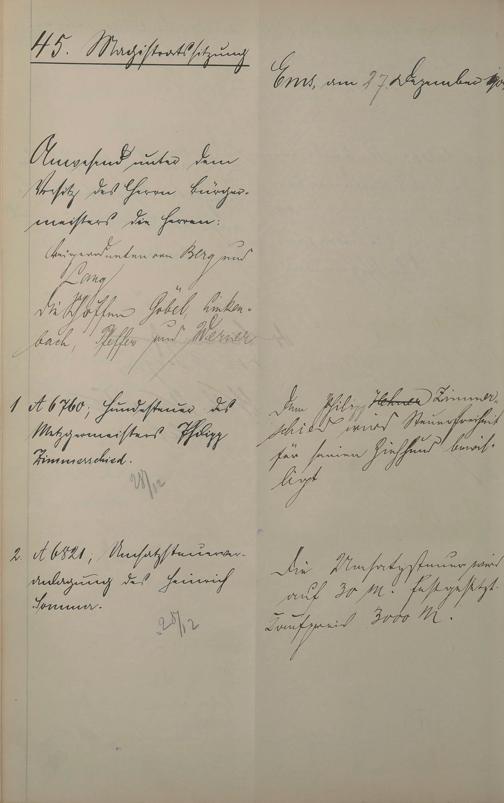 45. Magistratssitzung
Ems, am 27. Dezember
Anwesend unter dem
Vorsitz des Herrn Bürger-
meisters die Herren:
Beigeordneten von Berg und
Lang
die Schöffen Göbel, Linken-
bach, Pfeffer und Werner
1 A 6760; Hundesteuer des
Metzgermeisters Philipp
Zimmerschied.
28/12
Dem Philipp Zimmer-
schied wird Steuerfreiheit
für seinen Ziehhund bewil-
ligt
2. A 6821; Umsatzsteuerver-
anlagung des Heinrich
Sommer.
28/12
Die Umsatzsteuer wird
auf 30 M. festgesetzt.
Kaufpreis 3000 M.